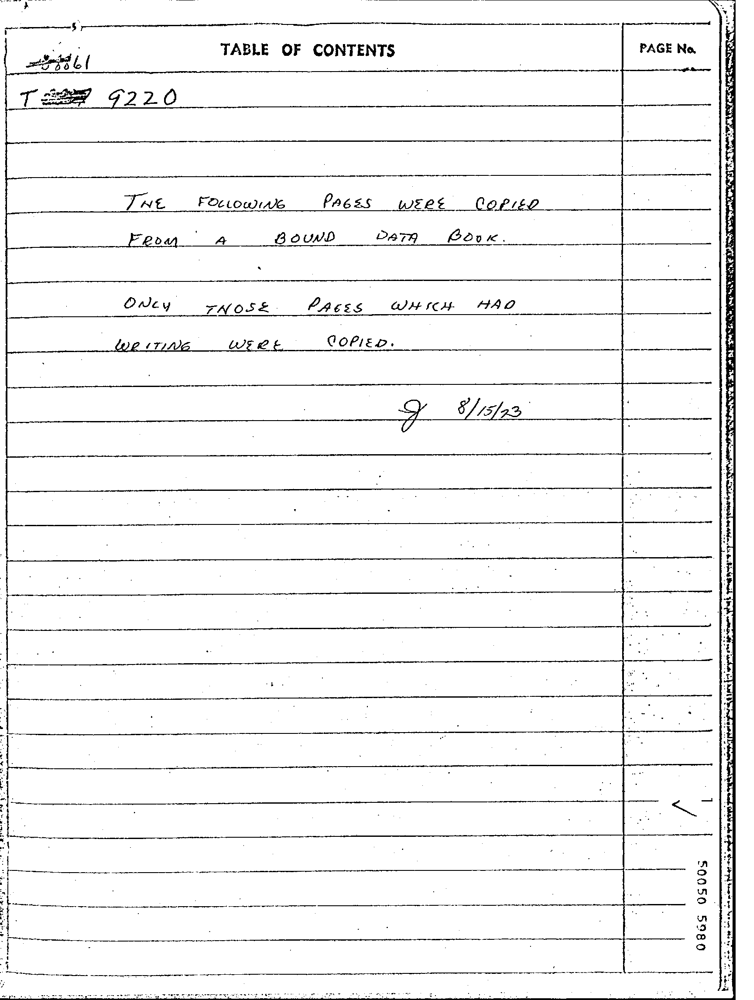 TABLE OF CONTENTS
PAGE No.
T 9220
THE FOLLOWING PAGES WERE COPIED
FROM A BOUND DATA BOOK.
ONLY THOSE PAGES WHICH HAD
WRITING WERE COPIED.
8/15/23
50050 5980